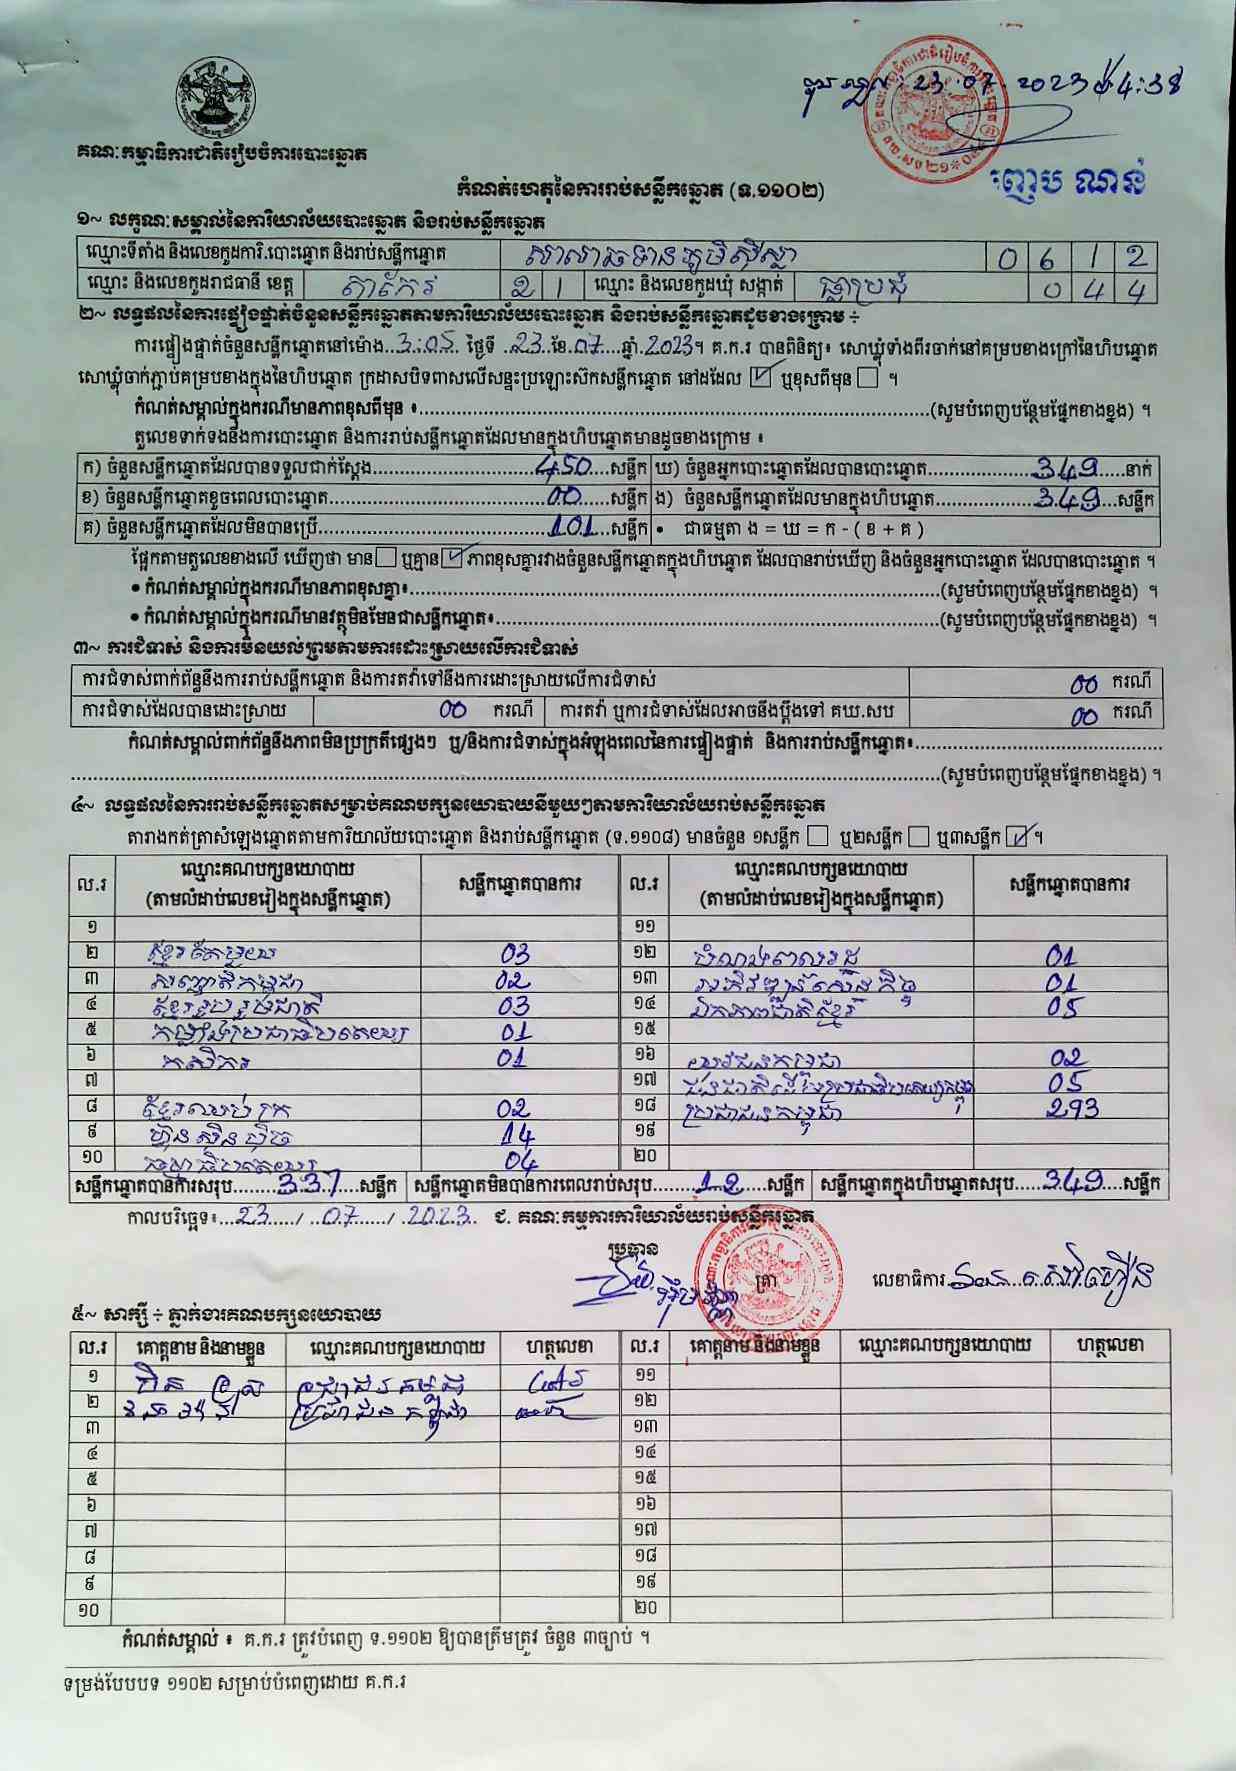 23.07.2023 14:38
គណៈកម្មាធិការជាតិរៀបចំការបោះឆ្នោត
ញែប ណាន់
កំណត់ហេតុនៃការរាប់សន្លឹកឆ្នោត (ទ.១១០២)
១~ លក្ខណៈសម្គាល់នៃការិយាល័យបោះឆ្នោត និងរាប់សន្លឹកឆ្នោត
ឈ្មោះទីតាំង និងលេខកូដការិ.បោះឆ្នោត និងរាប់សន្លឹកឆ្នោត សាលាឆទានភូមិស៊ីស្លា 0 6 1 2
ឈ្មោះ និងលេខកូដរាជធានី ខេត្ត តាកែវ 2 1 ឈ្មោះ និងលេខកូដឃុំ សង្កាត់ 0 4 4
២~ លទ្ធផលនៃការផ្ទៀងផ្ទាត់ចំនួនសន្លឹកឆ្នោតតាមការិយាល័យបោះឆ្នោត និងរាប់សន្លឹកឆ្នោតដូចខាងក្រោម ÷
ការផ្ទៀងផ្ទាត់ចំនួនសន្លឹកឆ្នោតនៅម៉ោង..3:05.. ថ្ងៃទី ..23..ខែ..07...ឆ្នាំ.2023។ គ.ក.រ បានពិនិត្យ៖ សោឃ្លុំទាំងពីរចាក់នៅគម្របខាងក្រៅនៃហិបឆ្នោត
សោឃ្លុំចាក់ភ្ជាប់គម្របខាងក្នុងនៃហិបឆ្នោត ក្រដាសបិទពាសលើសន្ទះប្រឡោះស៊កសន្លឹកឆ្នោត នៅដដែល ☑ ឬខុសពីមុន ☐ ។
កំណត់សម្គាល់ក្នុងករណីមានភាពខុសពីមុន ៖..........(សូមបំពេញបន្ថែមផ្នែកខាងខ្នង) ។
តួលេខទាក់ទងនឹងការបោះឆ្នោត និងការរាប់សន្លឹកឆ្នោតដែលមានក្នុងហិបឆ្នោតមានដូចខាងក្រោម ៖
ក) ចំនួនសន្លឹកឆ្នោតដែលបានទទួលជាក់ស្តែង..........450....សន្លឹក ឃ) ចំនួនអ្នកបោះឆ្នោតដែលបានបោះឆ្នោត..........349....នាក់
ខ) ចំនួនសន្លឹកឆ្នោតខូចពេលបោះឆ្នោត..........00....សន្លឹក ង) ចំនួនសន្លឹកឆ្នោតដែលមានក្នុងហិបឆ្នោត..........349....សន្លឹក
គ) ចំនួនសន្លឹកឆ្នោតដែលមិនបានប្រើ..........101....សន្លឹក • ជាធម្មតា ង = ឃ = ក - ( ខ + គ )
ផ្អែកតាមតួលេខខាងលើ ឃើញថា មាន ☐ ឬគ្មាន ☑ ភាពខុសគ្នារវាងចំនួនសន្លឹកឆ្នោតក្នុងហិបឆ្នោត ដែលបានរាប់ឃើញ និងចំនួនអ្នកបោះឆ្នោត ដែលបានបោះឆ្នោត ។
• កំណត់សម្គាល់ក្នុងករណីមានភាពខុសគ្នា៖..........(សូមបំពេញបន្ថែមផ្នែកខាងខ្នង) ។
• កំណត់សម្គាល់ក្នុងករណីមានវត្ថុមិនមែនជាសន្លឹកឆ្នោត៖..........(សូមបំពេញបន្ថែមផ្នែកខាងខ្នង) ។
៣~ ការជំទាស់ និងការមិនយល់ព្រមតាមការដោះស្រាយលើការជំទាស់
ការជំទាស់ពាក់ព័ន្ធនឹងការរាប់សន្លឹកឆ្នោត និងការតវ៉ាទៅនឹងការដោះស្រាយលើការជំទាស់ 00 ករណី
ការជំទាស់ដែលបានដោះស្រាយ 00 ករណី ការតវ៉ា ឬការជំទាស់ដែលអាចនឹងប្តឹងទៅ គឃ.សប 00 ករណី
កំណត់សម្គាល់ពាក់ព័ន្ធនឹងភាពមិនប្រក្រតីផ្សេងៗ ឬ/និងការជំទាស់ក្នុងអំឡុងពេលនៃការផ្ទៀងផ្ទាត់ និងការរាប់សន្លឹកឆ្នោត៖..........
..........(សូមបំពេញបន្ថែមផ្នែកខាងខ្នង) ។
៤~ លទ្ធផលនៃការរាប់សន្លឹកឆ្នោតសម្រាប់គណបក្សនយោបាយនីមួយៗតាមការិយាល័យរាប់សន្លឹកឆ្នោត
តារាងកត់ត្រាសំឡេងឆ្នោតតាមការិយាល័យបោះឆ្នោត និងរាប់សន្លឹកឆ្នោត (ទ.១១០៨) មានចំនួន ១សន្លឹក ☐ ឬ២សន្លឹក ☐ ឬ៣សន្លឹក ☑។
ល.រ ឈ្មោះគណបក្សនយោបាយ សន្លឹកឆ្នោតបានការ ល.រ ឈ្មោះគណបក្សនយោបាយ សន្លឹកឆ្នោតបានការ
(តាមលំដាប់លេខរៀងក្នុងសន្លឹកឆ្នោត) (តាមលំដាប់លេខរៀងក្នុងសន្លឹកឆ្នោត)
១ ១១
២ ខ្មែរតែមួយ 03 ១២ បំណងពលរដ្ឋ 01
៣ សញ្ជាតិកម្ពុជា 02 ១៣ 01
៤ ខ្មែររួបរួមជាតិ 03 ១៤ ឯកភាពជាតិខ្មែរ 05
៥ កម្លាំងប្រជាធិបតេយ្យ 01 ១៥
៦ កសិករ 01 ១៦ យុវជនកម្ពុជា 02
៧ ១៧ ជនជាតិដើមប្រជាធិបតេយ្យកម្ពុជា 05
៨ ខ្មែរឈប់ក្រ 02 ១៨ ប្រជាជនកម្ពុជា 293
៩ ហ៊្វុនស៊ិនប៉ិច 14 ១៩
១០ ធម្មាធិបតេយ្យ 04 ២០
សន្លឹកឆ្នោតបានការសរុប........337....សន្លឹក សន្លឹកឆ្នោតមិនបានការពេលរាប់សរុប.......12....សន្លឹក សន្លឹកឆ្នោតក្នុងហិបឆ្នោតសរុប.....349....សន្លឹក
កាលបរិច្ឆេទ៖...23...../...07...../..2023. ជ. គណៈកម្មការការិយាល័យរាប់សន្លឹកឆ្នោត
ប្រធាន
ត្រា
លេខាធិការ
៥~ សាក្សី ÷ ភ្នាក់ងារគណបក្សនយោបាយ
ល.រ គោត្តនាម និងនាមខ្លួន ឈ្មោះគណបក្សនយោបាយ ហត្ថលេខា ល.រ គោត្តនាម និងនាមខ្លួន ឈ្មោះគណបក្សនយោបាយ ហត្ថលេខា
១ ប្រជាជនកម្ពុជា ១១
២ ប្រជាជនកម្ពុជា ១២
៣ ១៣
៤ ១៤
៥ ១៥
៦ ១៦
៧ ១៧
៨ ១៨
៩ ១៩
១០ ២០
កំណត់សម្គាល់ ៖ គ.ក.រ ត្រូវបំពេញ ទ.១១០២ ឱ្យបានត្រឹមត្រូវ ចំនួន ៣ច្បាប់ ។
ទម្រង់បែបបទ ១១០២ សម្រាប់បំពេញដោយ គ.ក.រ